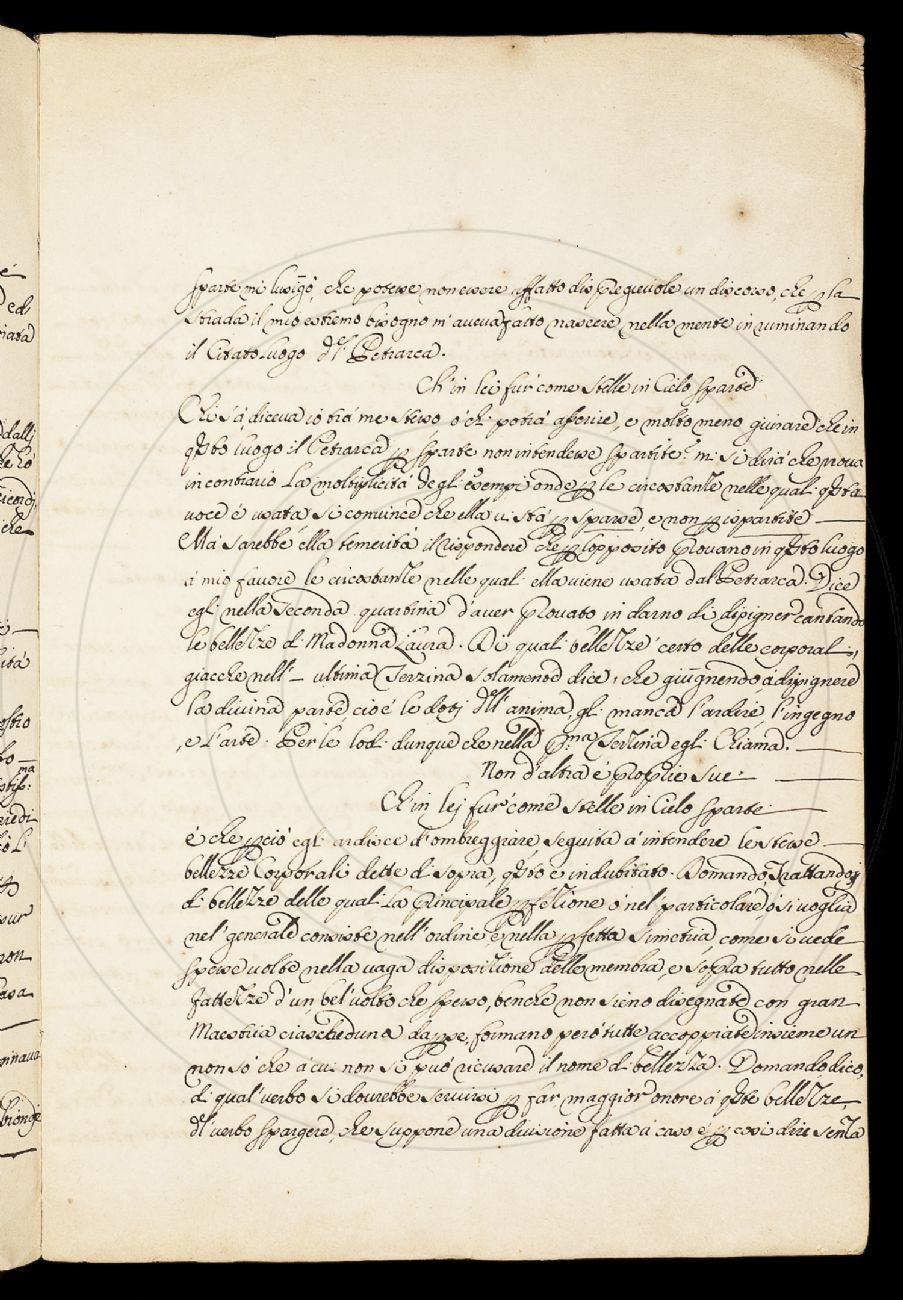 sparte mi lusigò, che potesse non essere affatto dispregieuole un discorso, che p la
strada il mio estremo bisogno m'aueua fatto nascere nella mente in ruminando
il Citato Luogo dl Petrarca.
Ch'in lei fur come Stelle in Cielo sparte
Chi sà, diceua io trà me stesso ò chi potrà asserire, e molto meno giurare che in
qsto luogo il Petrarca p sparte non intendesse spartite? mi si dirà che proua
in contrario La moltiplicità degl'esempi onde p le circostante nelle quali qsta
uoce è usata si conuince che ella ui stà p sparse, e non p ispartite
Mà sarebbe ella temerità il rispondere che p l'opposito prouano in qsto luogo
à mio fauore le circostante nelle quali ella uiene usata dal Petrarca. Dice
egli nella Seconda quartina d'auer prouato in darno di dipigner cantando
le bellezze di Madonna Laura. Di quali bellezze certo delle corporali,
giacche nell' ultima Terzina solamente dice, che giugnendo, à dipignere
la diuina parte, cioè le doti dll'anima, gli manca l'ardire, l'ingegno
, e l'arte. Per le lodi dunque che nella pma Terzina egli Chiama.
Non d'altra è proprie sue
Ch'in lei fur come Stelle in Cielo sparte
è che p ciò egli ardisce d'ombreggiare seguita à intendere le stesse
bellezze Corporali dette di sopra, qsto è indubitato. Domando, Trattandosi
di bellezze delle quali La principale pfezione ò nel particolare, ò si uoglia
nel generale consiste nell'ordine e nella pfetta simetria come si uede
spesse uolte nella uaga disposizione delle membra, e sopra tutto nelle
fattezze d'un bel uolto che spesso, benche non sieno disegnate con gran
Maestria ciascheduna da p se, formano però tutte accoppiate insieme un
non sò che à cui non si può ricusare il nome di bellezza. Domando, dico,
di qual uerbo si dourebbe seruirsi p far maggior onore à qste bellezze,
dl uerbo spargere, che suppone una diuisione fatta à caso e p cosi dire senza